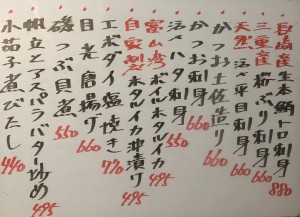 長崎産生本鮪トロ刺身 880
三重産 桜ぶり刺身 660
天然 活〆平目刺身 660
かつお土佐造り 660
かつお刺身 660
活〆ハタ刺身 550
富山湾 ボイルホタルイカ 495
自家製 ホタルイカ沖漬り
エボダイ塩焼き 770
目光唐揚り 660
磯つぶ貝煮 550
帆立とアスパラバター炒め 495
小茄子煮びたし 440